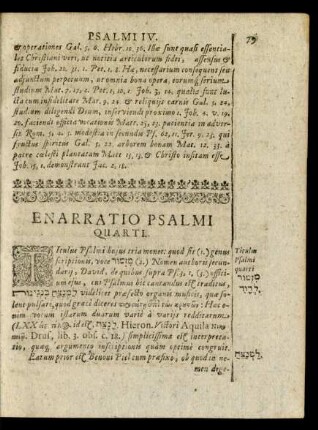 PSALMI IV.
79
& operationes Gal. 5. 6. Hebr. 10. 36. Hæ sunt quasi essentia-
les Christiani veri, ut notitia articulorum fidei, assensus &
fiducia Joh. 20. 31. 1. Pet. 1. 8. Hæ, necessarium consequens seu
adjunctum perpetuum, ut omnia bona opera, eorumq; serium
studium Mat. 5. 15. 2. Pet. 1. 10. 1. Joh. 3. 10. qualia sunt lu-
cta cum infidelitate Mar. 9. 24. & reliquijs carnis Gal. 5. 24.
studium diligendi Deum, inserviendi proximo 1. Joh. 4. v. 19,
20, faciendi officia vocationis Matt. 25. 23, patientia in adver-
sis Rom. 5. 4. 5. modestia in secundis Ps. 62. 11. Jer. 9. 23. qui
fructus spiritus Gal. 5. 22 arborem bonam Mat. 12. 33. à
patre cœlesti plantatam Matt 15. 13. & Christo insitam esse
Joh. 15. 1. demonstrant Jac. 2. 18.
ENARRATIO PSALMI
QUARTI.
Titulus Psalmi hujus tria monet: quod sit (1.) genus
scriptionis, voce מזמור (2.) Nomen authoris secun-
darij, David, de quibus supra Ps. 3. 1. (3.) offici-
um ejus, cui Psalmus hic cantandus est traditus,
למנצח בנגינות videlicet præfecto organis musicis, quæ so-
lent pulsari, quod græci dicerent
nem vocum istarum duarum variè à varijs redditarum.
(LXX id est, לנצח. Hieron. Victori Aquila
Drus, lib. 3. obs. c. 12.) simplicissima est interpreta-
tio, quæq; argumento inscriptionis quàm optimè congruit.
Eatum prior est Benoni Piel cum præfixo, ob quod in no-
men dege-
Titulus
Psalmi
quarti
מזמור
לדוד
למנצח